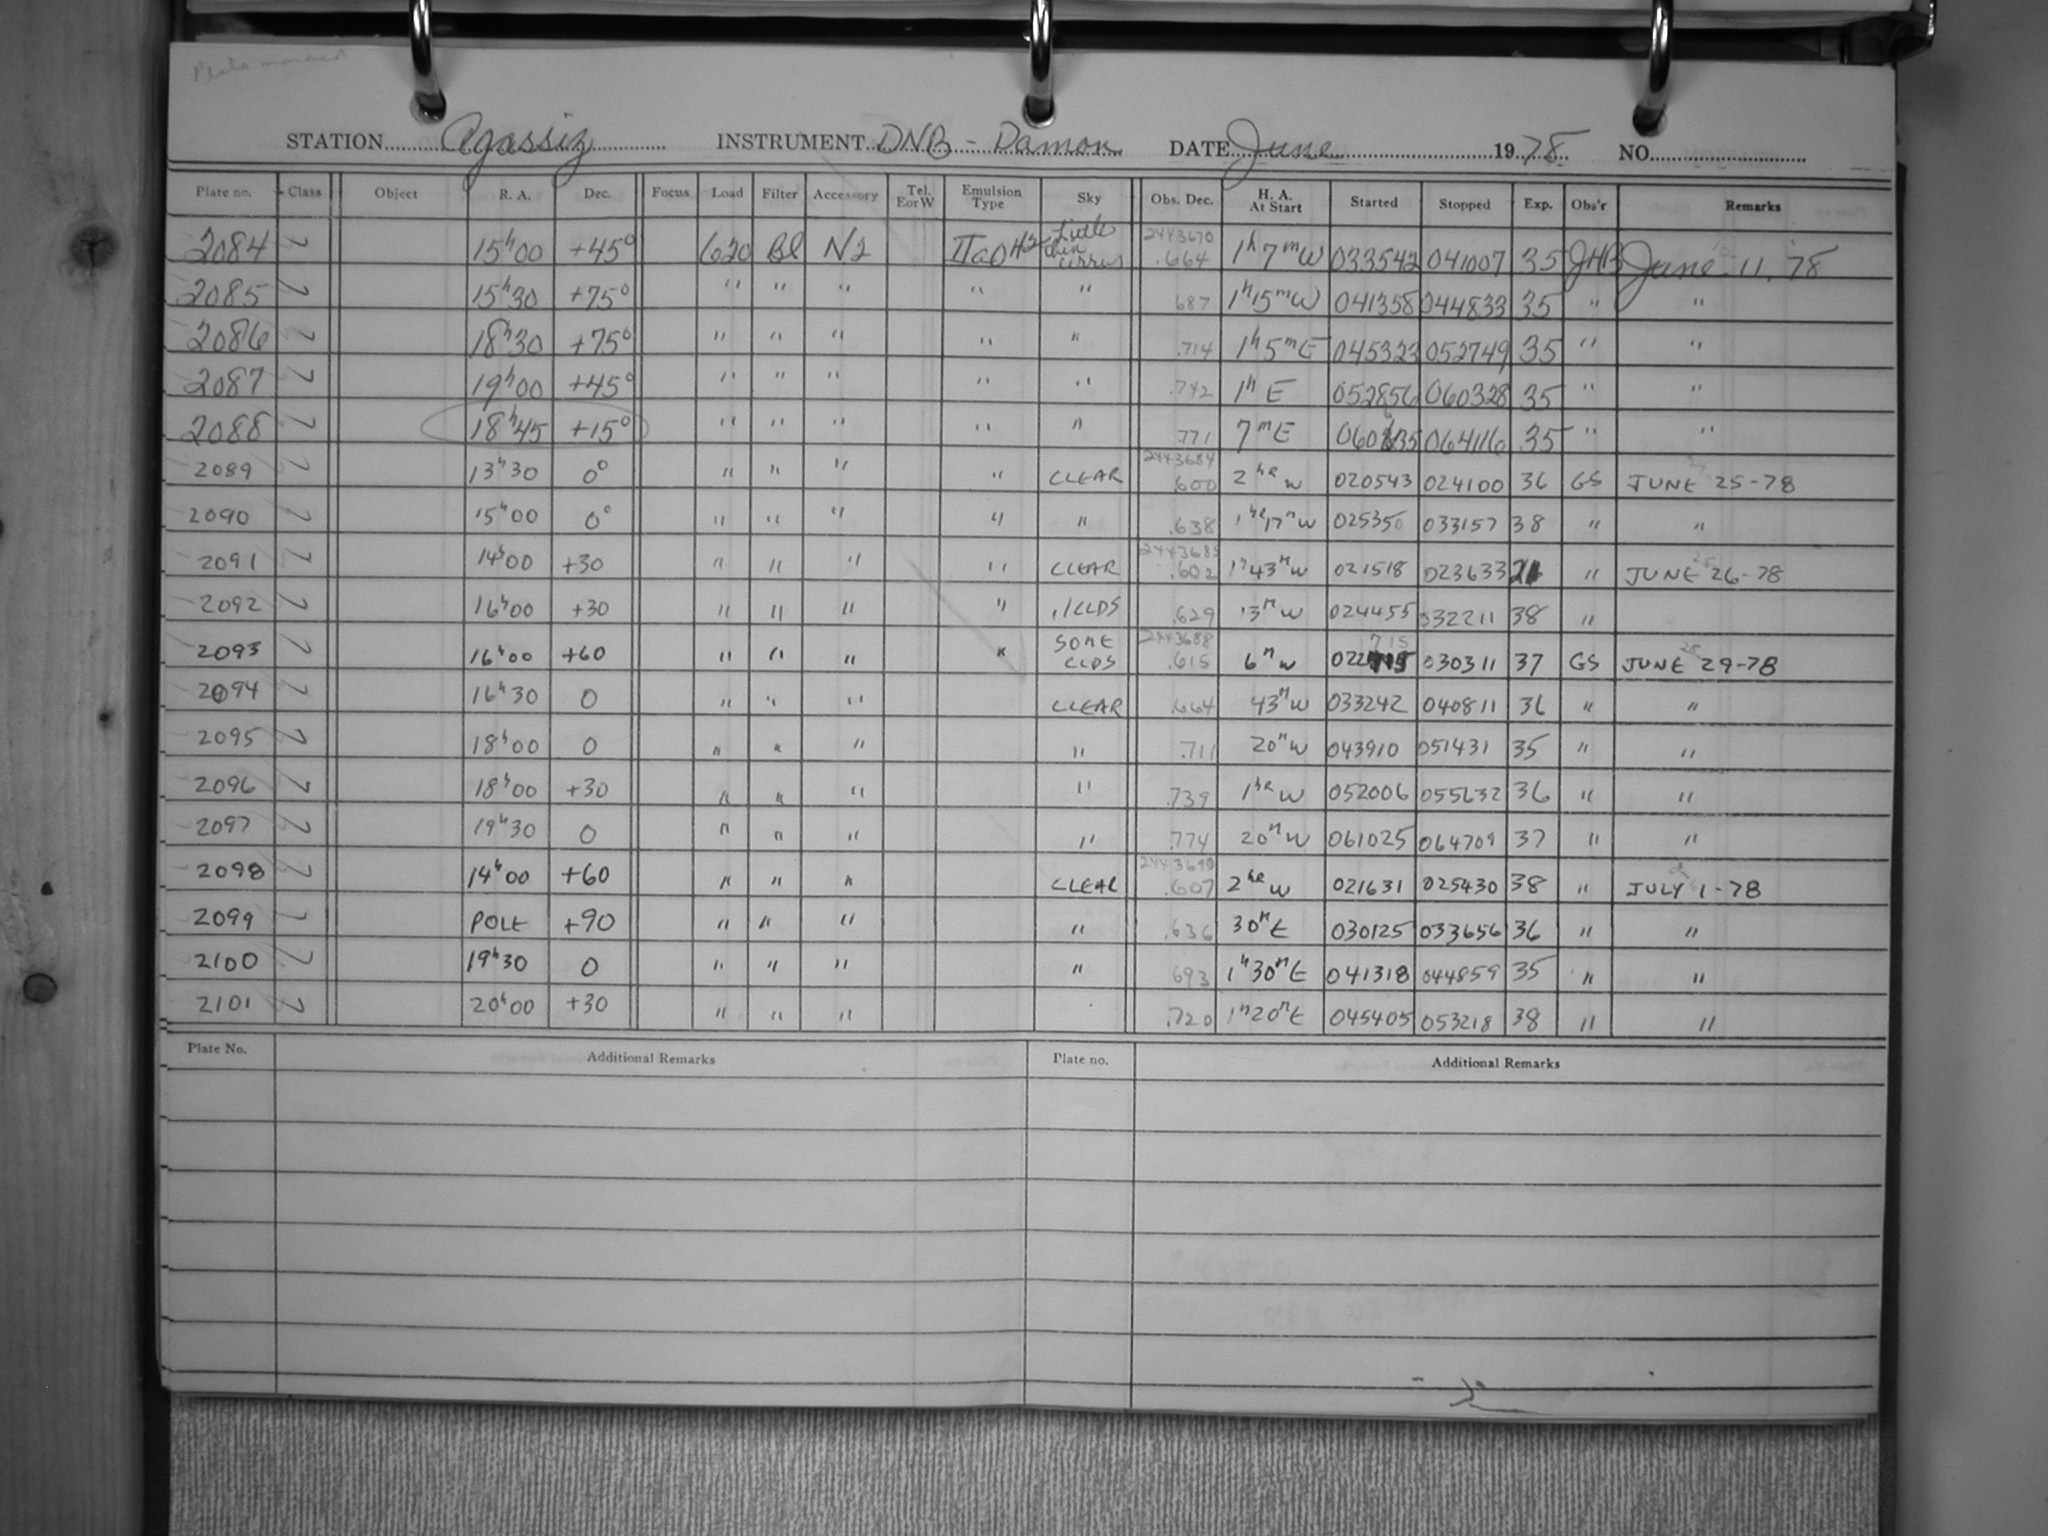 STATION Agassiz INSTRUMENT DNB - Damon DATE June 1978 NO.
Plate no. Class Object R. A. Dec. Focus Load Filter Accessory Tel. E or W Emulsion Type Sky Obs. Dec. H. A. At Start Started Stopped Exp. Obs'r Remarks
2084 7 15ʰ00 +45° 620 Bl N2 IIaO H2 Little thin cirrus 2443670 .664 1ʰ 7ᵐ W 033542 041007 35 JHB June 11, 78
2085 7 15ʰ30 +75° " " " " " 687 1ʰ15ᵐW 041358 044833 35 " "
2086 7 18ʰ30 +75° " " " " " .714 1ʰ5ᵐE 045323 052749 35 " "
2087 7 19ʰ00 +45° " " " " " .742 1ʰ E 052856 060328 35 " "
2088 7 18ʰ45 +15° " " " " " .771 7ᵐE 060635 064116 35 " "
2089 7 13ʰ30 0° " " " " CLEAR 2443684 .600 2ʰᴿ W 020543 024100 36 GS JUNE 25-78
2090 7 15ʰ00 0° " " " " " .638 1ʰᴿ17ᵐW 025350 033157 38 " "
2091 7 14ʰ00 +30 " " " " CLEAR 2443685 .602 1ʰ43ᵐW 021518 023633 21 " JUNE 26-78
2092 7 16ʰ00 +30 " " " " ./CLDS .629 13ᵐW 024455 032211 38 "
2093 7 16ʰ00 +60 " " " " SOME CLDS 2443688 .615 6ᵐW 022715 030311 37 GS JUNE 29-78
2094 7 16ʰ30 0 " " " CLEAR .664 43ᵐW 033242 040811 36 " "
2095 7 18ʰ00 0 " " " " .711 20ᵐW 043910 051431 35 " "
2096 7 18ʰ00 +30 " " " " .739 1ʰᴿ W 052006 055632 36 " "
2097 7 19ʰ30 0 " " " " .774 20ᵐW 061025 064709 37 " "
2098 7 14ʰ00 +60 " " " CLEAR 2443690 .607 2ʰᴿ W 021631 025430 38 " JULY 1-78
2099 7 POLE +90 " " " " .636 30ᵐE 030125 033656 36 " "
2100 7 19ʰ30 0 " " " " 693 1ʰ30ᵐE 041318 044859 35 " "
2101 7 20ʰ00 +30 " " " .720 1ʰ20ᵐE 045405 053218 38 " "
Plate No. Additional Remarks Plate no. Additional Remarks